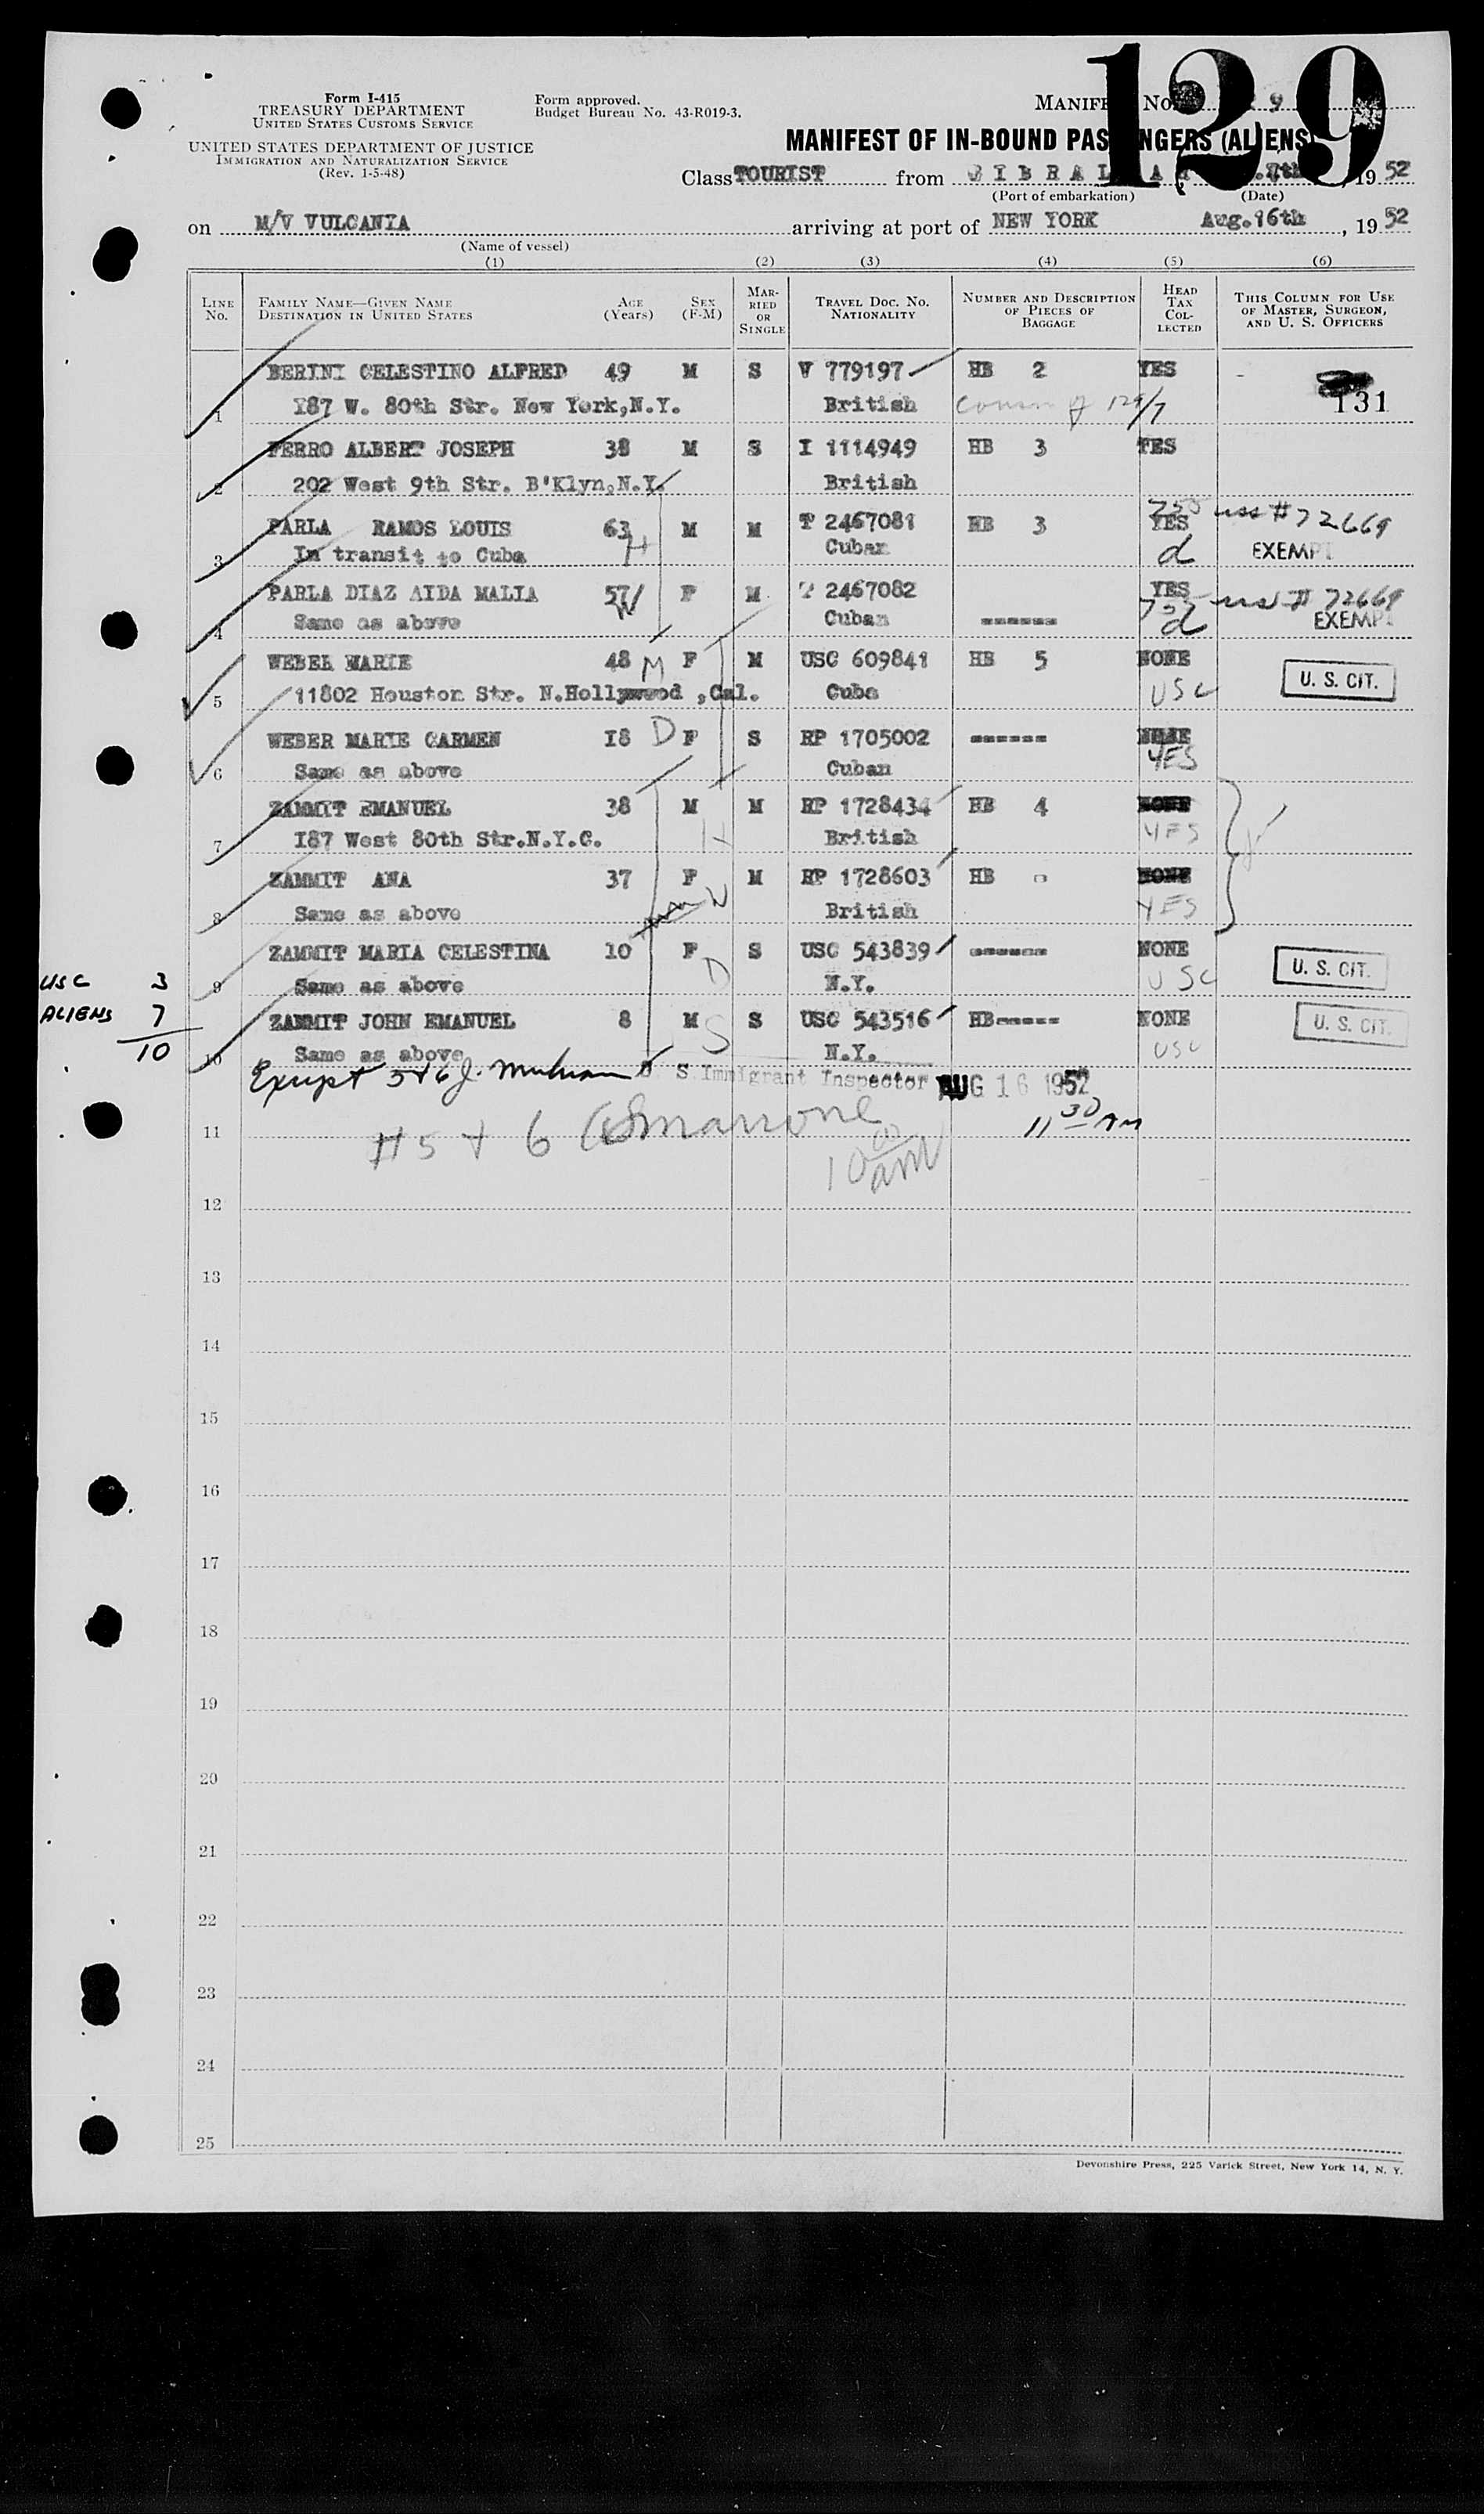 129
Form I-415
TREASURY DEPARTMENT
UNITED STATES CUSTOMS SERVICE
UNITED STATES DEPARTMENT OF JUSTICE
IMMIGRATION AND NATURALIZATION SERVICE
(Rev. 1-5-48)
Form approved.
Budget Bureau No. 43-R019-3.
MANIFEST OF IN-BOUND PASSENGERS (ALIENS)
Class TOURIST from GIBRALTAR, 7th, 1952
(Port of embarkation) (Date)
on M/V VULCANIA arriving at port of NEW YORK Aug. 16th, 1952
(Name of vessel)
(1) (2) (3) (4) (5) (6)
LINE No. FAMILY NAME—GIVEN NAME DESTINATION IN UNITED STATES AGE (Years) SEX (F-M) MARRIED OR SINGLE TRAVEL DOC. NO. NATIONALITY NUMBER AND DESCRIPTION OF PIECES OF BAGGAGE HEAD TAX COLLECTED THIS COLUMN FOR USE OF MASTER, SURGEON, AND U. S. OFFICERS
BERINI CELESTINO ALFRED 49 M S V 779197 HB 2 YES
1 187 W. 80th Str. New York,N.Y. British Cousin of 129/7 131
FERRO ALBERT JOSEPH 38 M S I 1114949 HB 3 YES
2 202 West 9th Str. B'Klyn,N.Y. British
PARLA RAMOS LOUIS 63 M M T 2467081 HB 3 YES # 72669
3 In transit to Cuba H Cuban d EXEMPT
PARLA DIAZ AIDA MALIA 57 W F M T 2467082 YES # 72669
4 Same as above Cuban ------ d EXEMPT
WEBER MARIE 48 M F M USC 609841 HB 5 NONE
5 11802 Houston Str. N.Hollywood ,Cal. Cuba USC U. S. CIT.
WEBER MARIE CARMEN 18 D F S RP 1705002 ------ NONE
6 Same as above Cuban YES
ZAMMIT EMANUEL 38 M M RP 1728434 HB 4 NONE
7 187 West 80th Str.N.Y.C. H British YES
ZAMMIT ANA 37 F M RP 1728603 HB NONE
8 Same as above W British YES
ZAMMIT MARIA CELESTINA 10 F S USC 543839 ------ NONE
USC 3
9 Same as above D N.Y. USC U. S. CIT.
ALIENS 7
ZAMMIT JOHN EMANUEL 8 M S USC 543516 HB----- NONE
10
10 Same as above S N.Y. USC U. S. CIT.
Except 5+6 J. U S Immigrant Inspector AUG 16 1952
11 30 AM
11
#5 + 6 Marrone
10 00 am
12
13
14
15
16
17
18
19
20
21
22
23
24
25
Devonshire Press, 225 Varick Street, New York 14, N. Y.